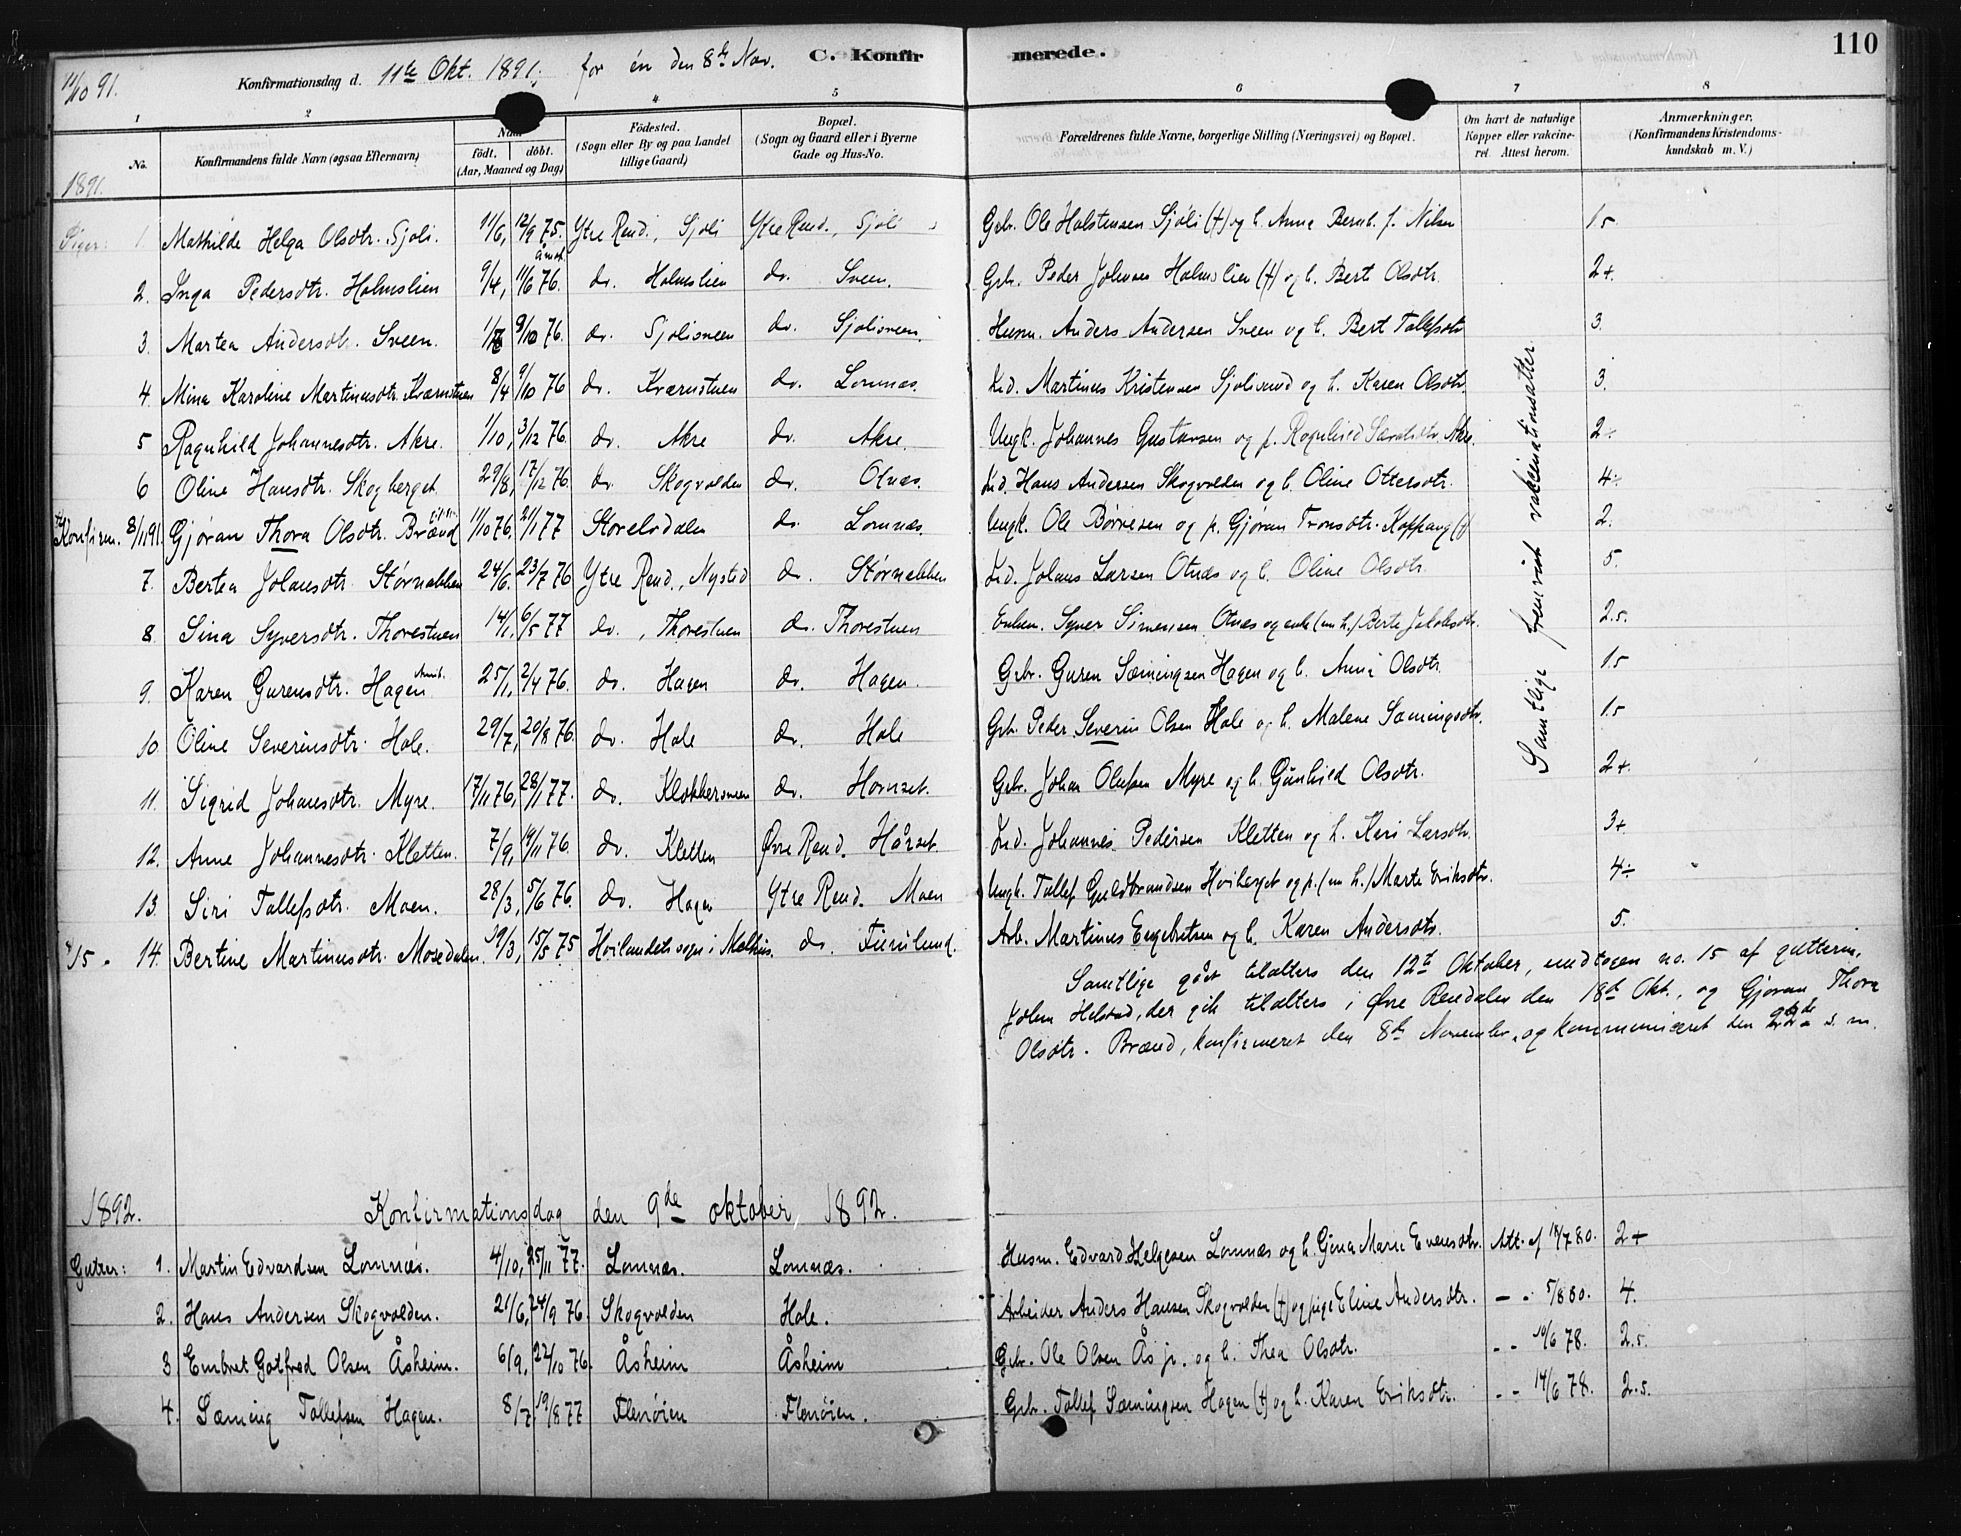 C. Konfirmerede. 110
11/10 91. Konfirmationsdag d. 11te Okt. 1891, for én den 8de Nov.
1 2 4 5 6 7 8
No. Konfirmandens fulde Navn (ogsaa Efternavn) Naar født. døbt. (Aar, Maaned og Dag) Fødested. (Sogn eller By og paa Landet tillige Gaard) Bopæl. (Sogn og Gaard eller i Byerne Gade og Hus-No. Forældrenes fulde Navne, borgerlige Stilling (Næringsvei) og Bopæl. Om havt de naturlige Kopper eller vakcineret. Attest herom. Anmærkninger. (Konfirmandens Kristendomskundskab m. V.)
1891.
Piger: 1. Mathilde Helga Olsdtr. Sjoli. 11/6, 12/9 75. Ytre Rend., Sjoli Ytre Rend., Sjoli Gbr. Ole Halstensen Sjøli (+) og h. Anne Bernh. f. Nilsen 1.5
2. Inga Pedersdtr. Holmslien 9/4, 11/6 76. do. Holmslien do. Sveen. Gbr. Peder Johnsen Holmslien (+) og h. Bert Olsdtr. 2+.
3. Martea Andersdtr. Sveen. 8/10 76. do. Sjolisveen do. Sjolisveen Husm. Anders Andersen Sveen og h. Bert Tollefsdtr 3.
4. Mina Karoline Martinusdtr. Kværnstuen 8/4 9/10 76 do. Kværnstuen do. Lomnæs. Ind. Martinus Kristensen Sjolisund og h. Karen Olsdtr. 3.
5 Ragnhild Johannesdtr. Akre. 1/10, 3/12 76. do. Akre do. Akre. Ungk. Johannes Gustavsen og p. Ragnhild Akre. 2÷
6 Oline Hansdtr. Skogberget 29/8, 17/12 76. do. Skogvolden do. Otnæs. Ind. Hans Andersen Skogvolden og h. Oline Ottersdtr. 4÷
Konfirm. 8/11 91. Gjøran Thora Olsdtr. Brænd 11/10 76. 21/1 77 Storelvdalen do. Lomnæs. Ungk. Ole Børresen og p. Gjøran Tronsdtr. Koppang (+) 2.
7. Bertea Johansdtr. Størnabben 24/6. 23/7 76 Ytre Rend., Nysted do. Størnabben Ind. Johans Larsen Otnæs og h. Oline Olsdtr. 5.
8. Sina Syversdtr. Thorestuen 14/1, 6/5 77 do., Thorestuen do. Thorestuen Enkem. Syver Simensen Otnæs og enke (nu h.) Berte Jakobsdtr. 2.5.
9. Karen Gurensdtr. Hagen 25/1, 2/4 76. do. Hagen do. Hagen. Gbr. Guren Sæmingsen Hagen og h. Anne Olsdtr. 1.5
10. Oline Severinsdtr. Hole. 29/7, 20/8 76. do. Hole do. Hole Gbr. Peder Severin Olsen Hole og h. Malene Sæmingsdtr. 1.5
11. Sigrid Johansdtr. Myre. 17/11 76, 28/1 77. do. Klokkersveen do. Hornset. Gbr. Johan Olufsen Myre og h. Gunhild Olsdtr. 2+.
12. Anne Johannesdtr. Kletten. 7/9, 19/11 76. do. Kletten Øvre Rend. Hårset. Ind. Johannes Pedersen Kletten og h. Kari Larsdtr. 3+
13. Siri Tollefsdtr. Moen. 28/3, 5/6 76. do. Hagen Ytre Rend. Moen Ungk. Tollef Guldbrandsen Hviberget og p. (nu h.) Marte Eriksdtr. 4÷
14. Bertine Martinusdtr. Mosedalen 29/3, 15/5 75 Høilandets sogn i Melhus. do. Arb. Martinus Engebretsen og h. Karen Andersdtr. 5.
Samtlige fremvist vakcinationsatter
Samtlige gået tilalters den 12te Oktober, undtagen no. 15 af gutterne,
Johan Helstad, der gik tilalters i Øvre Rendalen den 18de Okt., og Gjøran Thora
Olsdtr. Brænd, konfirmeret den 8de November, og kommuniceret den s. m.
1892. Konfirmationsdag den 9de oktober, 1892.
Gutter: 1. Martin Edvardsen Lomnæs. 4/10, 25/11 77. Lomnæs. Lomnæs. Husm. Edvard Helgesen Lomnæs og h. Gina Marie Evensdtr. Att. af 18/7 80. 2+
2. Hans Andersen Skogvolden. 21/6, 24/9 76. Skogvolden Hole. Arbeider Anders Hansen Skogvolden (+) og pige Eline Andersdtr. - - 5/8 80. 4.
3. Embret Gotfred Olsen Åsheim. 6/9, 22/10 76. Åsheim Åsheim Gbr. Ole Olsen Ås jr. og h. Thea Olsdtr. - - 10/6 78. 2.5.
4. Sæming Tollefsen Hagen. 8/7, 19/8 77 Flenøien Flenøien. Gbr. Tollef Sæmingsen Hagen (+) og h. Karen Eriksdtr. - - 14/6 78. 2.5.